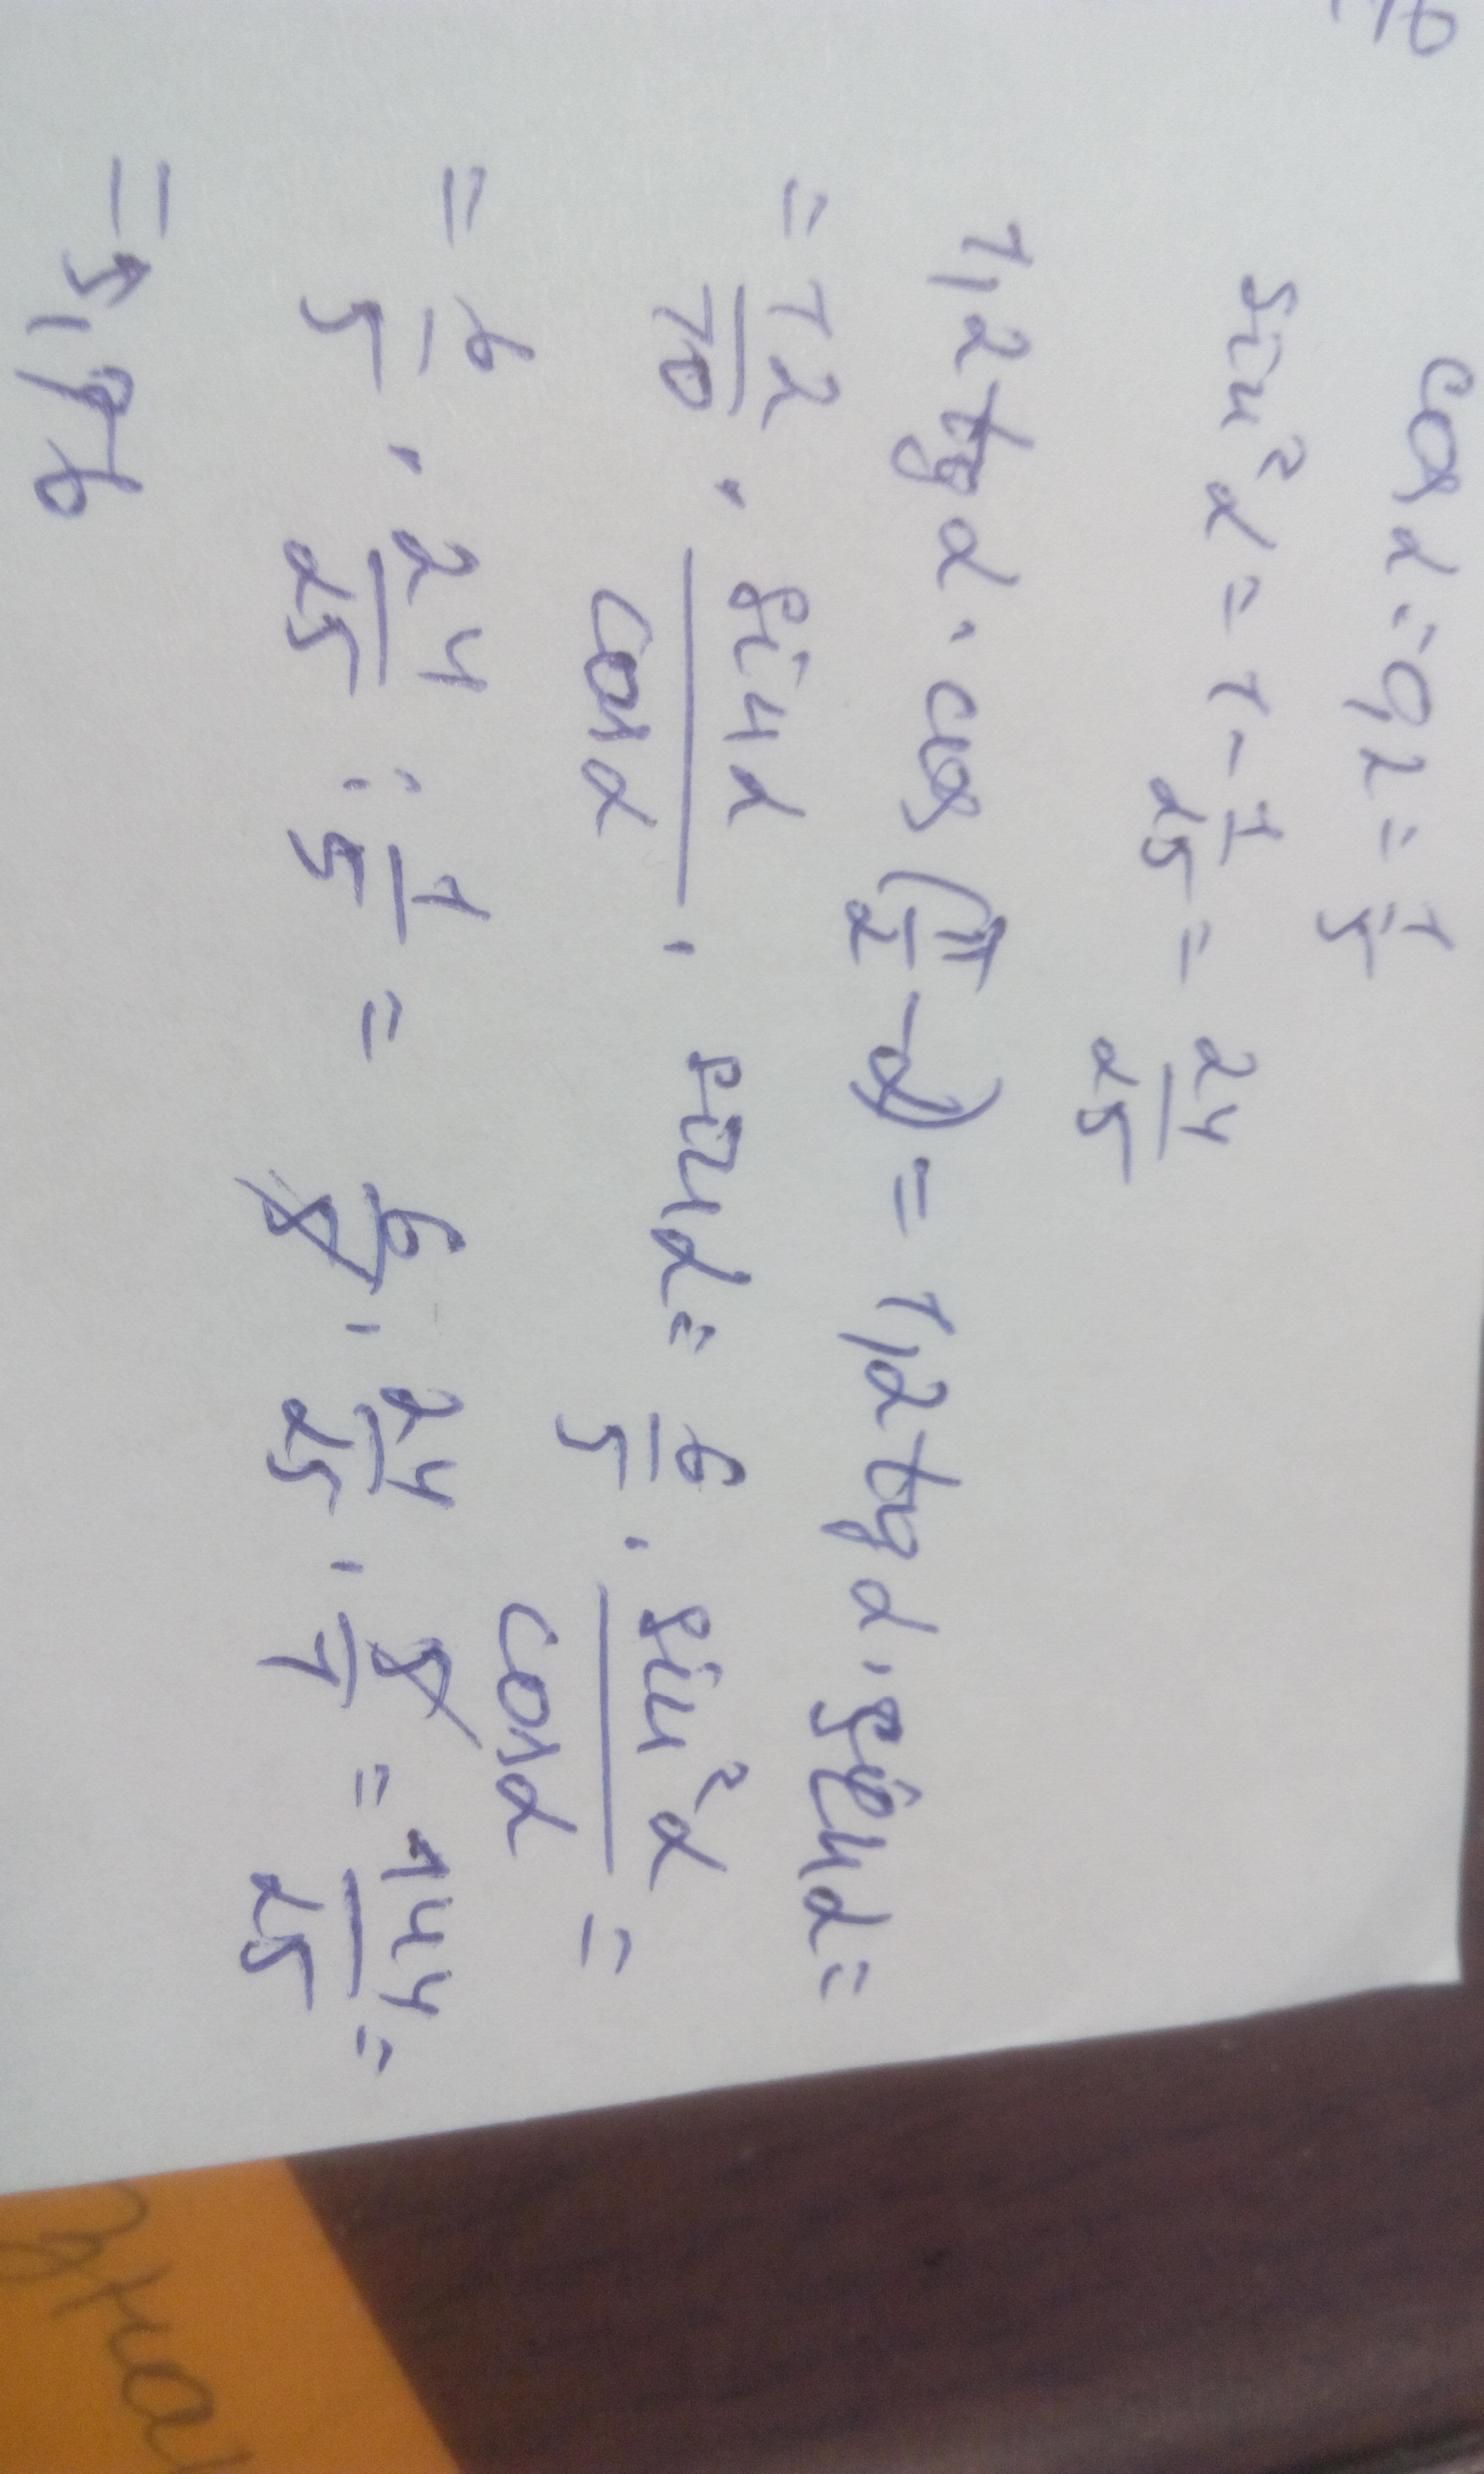 cos α = 0,2 = 1/5
sin²α = 1 - 1/25 = 24/25
1,2 tg α · cos (π/2 - α) = 1,2 tg α · sin α =
= 12/10 · sin α/cos α · sin α = 6/5 · sin²α/cos α =
= 6/5 · 24/25 : 1/5 = 6/5 · 24/25 · 5/1 = 144/25 =
= 5,76